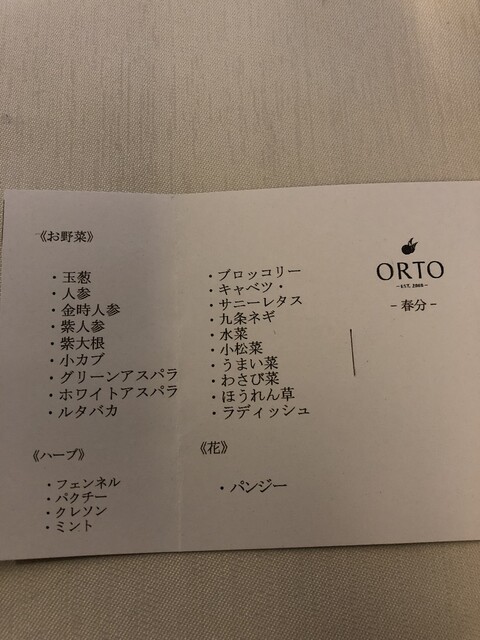 《お野菜》
・玉葱
・人参
・金時人参
・紫人参
・紫大根
・小カブ
・グリーンアスパラ
・ホワイトアスパラ
・ルタバカ
《ハーブ》
・フェンネル
・パクチー
・クレソン
・ミント
・ブロッコリー
・キャベツ・
・サニーレタス
・九条ネギ
・水菜
・小松菜
・うまい菜
・わさび菜
・ほうれん草
・ラディッシュ
《花》
・パンジー
ORTO
－春分－